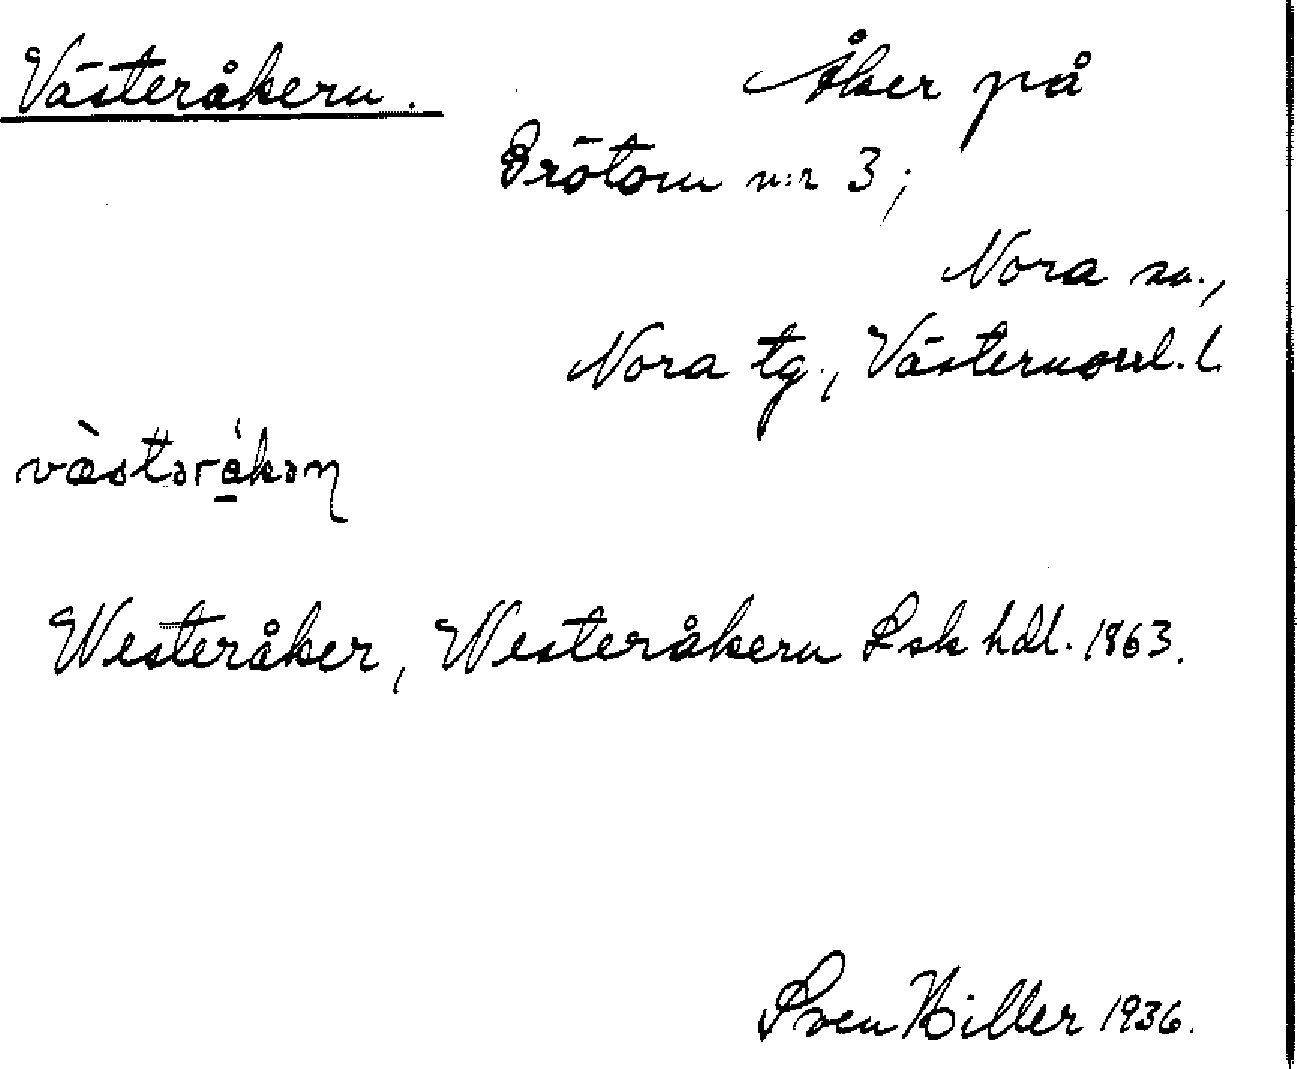 Västeråkern. Åker på
Prötom n:r 3;
Nora sn.,
Nora tg., Västernorrl. l.
Westeråker, Westeråkern Lsk hdl. 1863.
Sven Hiller 1936.